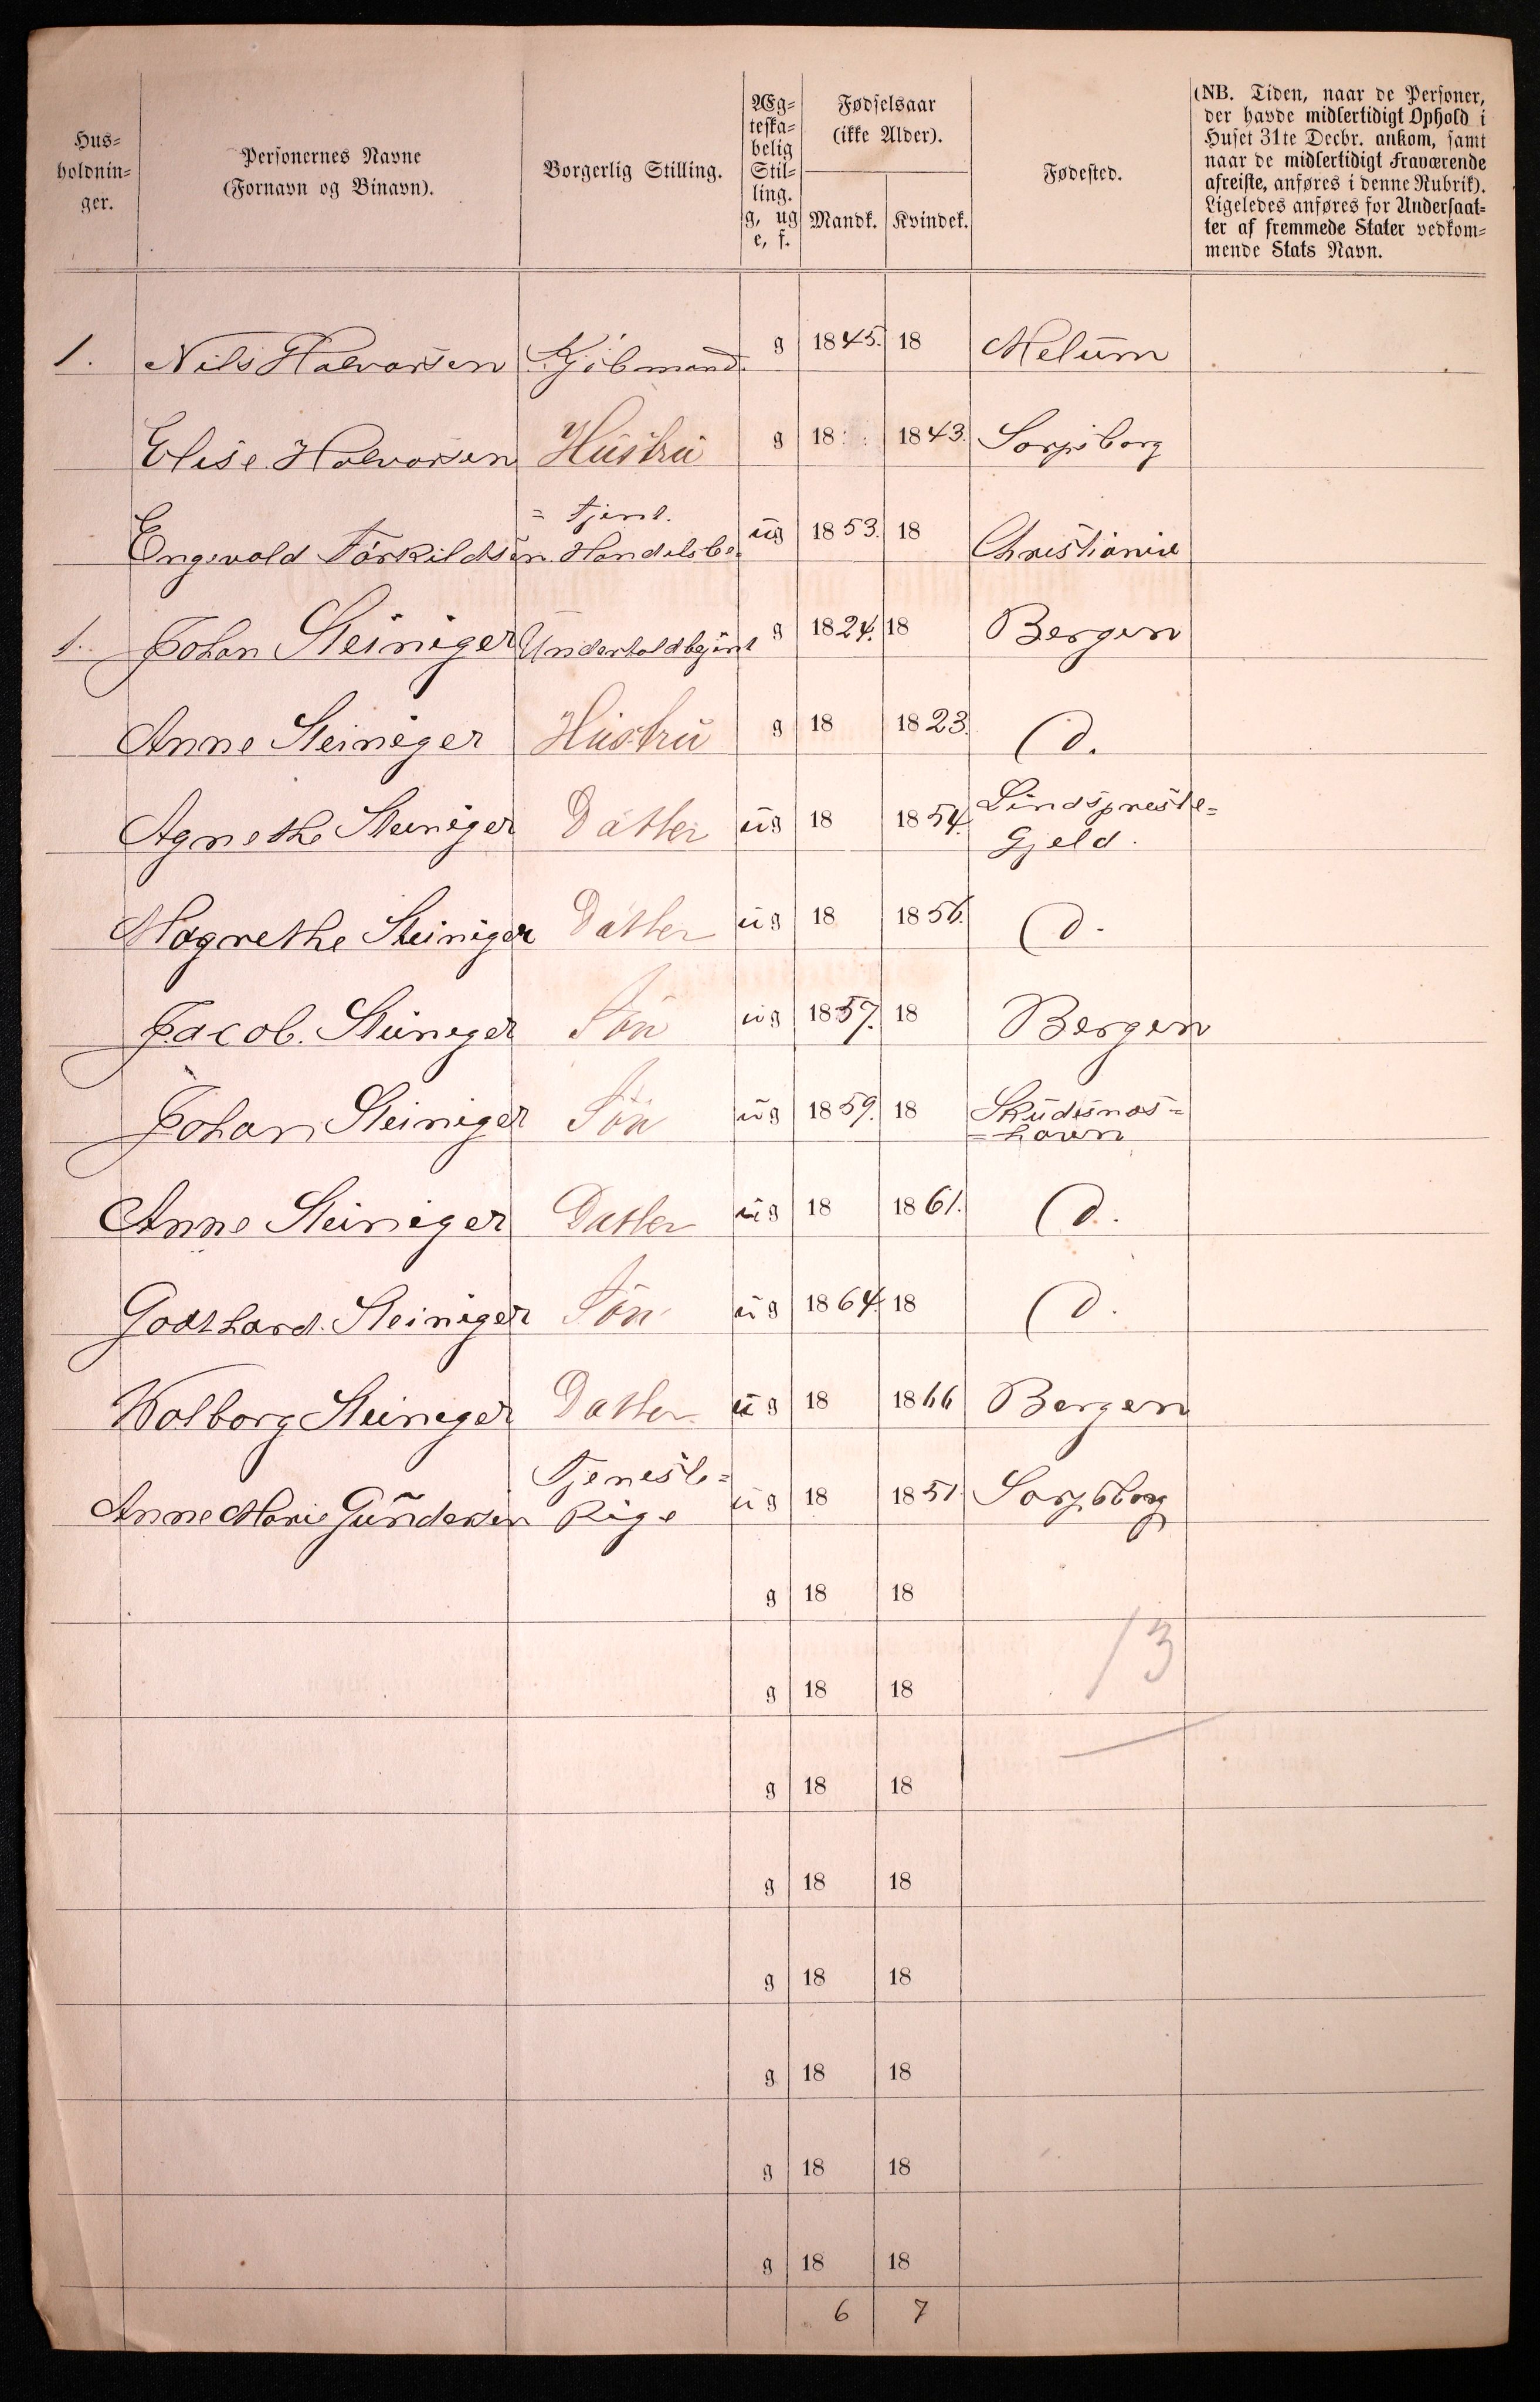 Hus-
holdnin-
ger.
Personernes Navne
(Fornavn og Binavn).
Borgerlig Stilling.
Æg-
teska-
belig
Stil-
ling.
g, ug
e, f.
Fødselsaar
(ikke Alder).
Mandk. Kvindek.
Fødested.
(NB. Tiden, naar de Personer,
der havde midlertidigt Ophold i
Huset 31te Decbr. ankom, samt
naar de midlertidigt Fraværende
afreiste, anføres i denne Rubrik).
Ligeledes anføres for Undersaat-
ter af fremmede Stater vedkom-
mende Stats Navn.
1. Nils Halvorsen Kjöbmand. g 1845. 18 Melum
Elise Halvorsen Hustru g 18 1843. Sarpsborg
= tjent.
Engevald Törkildsen Handelsbe- ug 1853. 18 Christiania
1. Johan Steiniger Underholdbetjent g 1824. 18 Bergen
Anne Steiniger Hustru g 18 1823. d.
Agnethe Steiniger Datter ug 18 1854. Lindspreste-
Gjeld.
Magrethe Steiniger Datter ug 18 1856. d.
Jacob. Steiniger Sön ug 1857. 18 Bergen
Johan Steiniger Sön ug 1859. 18 Skudesnas-
=havn
Anne Steiniger Datter ug 18 1861. d.
Godthard. Steiniger Sön ug 1864. 18 d.
Wolborg Steiniger Datter ug 18 1866 Bergen
Tjeneste-
Anne Marie Gundersen Pige ug 18 1851 Sarpsborg
g 18 18
13
g 18 18
g 18 18
g 18 18
g 18 18
g 18 18
g 18 18
g 18 18
6 7